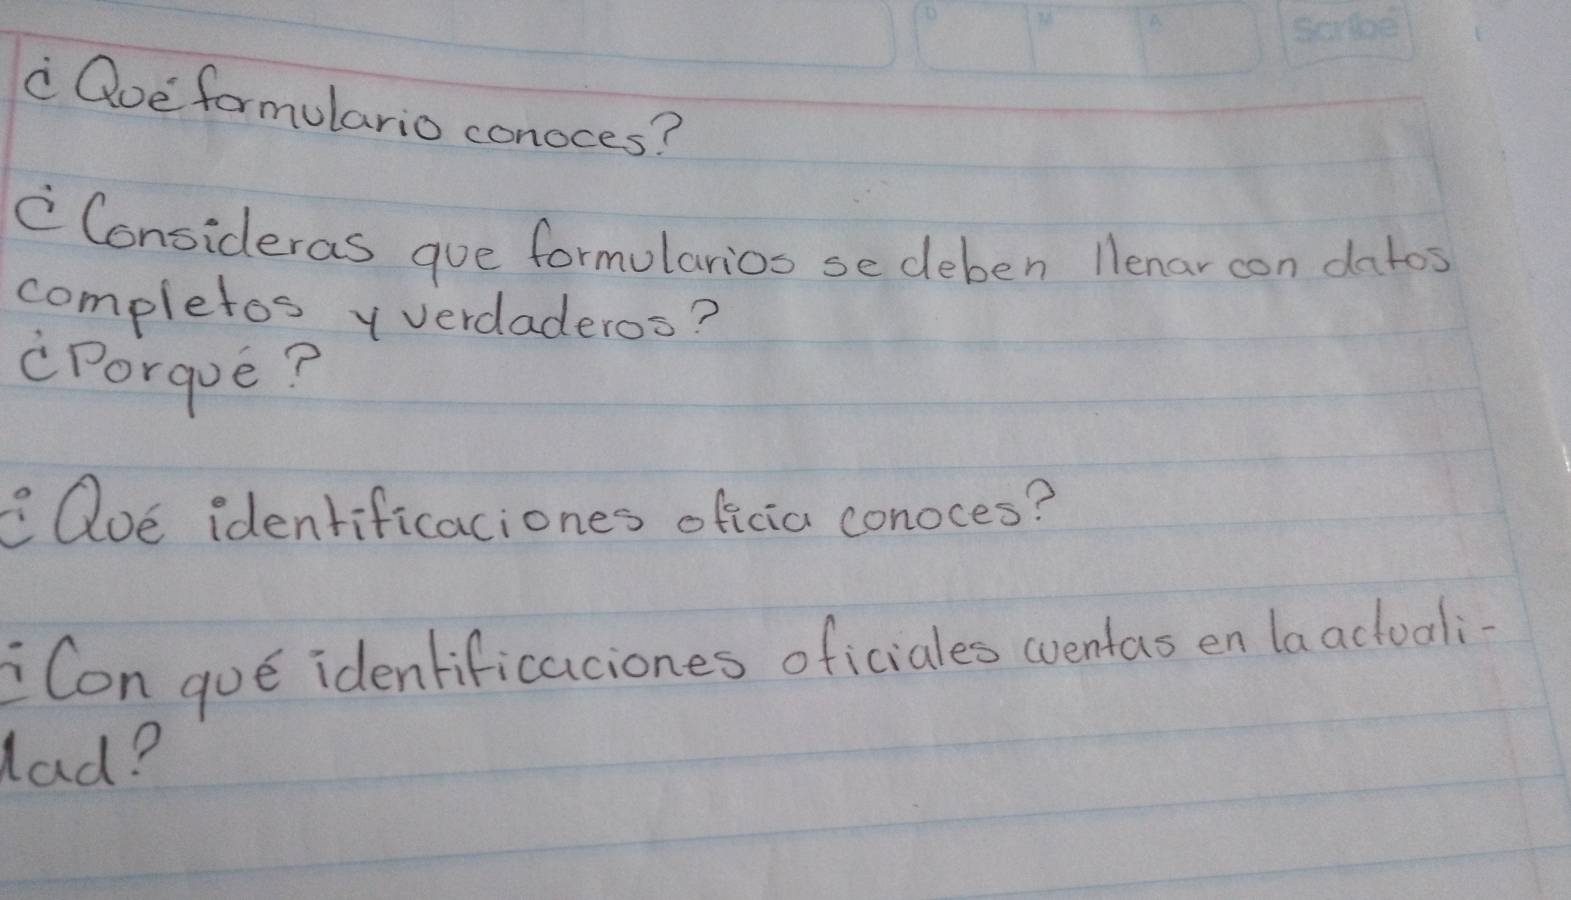 D M A Scribe
¿Qué formulario conoces?
¿Consideras que formularios se deben llenar con datos
completos y verdaderos?
¿Porqué?
¿Qué identificaciones oficia conoces?
¿Con qué identificaciones oficiales cuentas en la actuali-
dad?